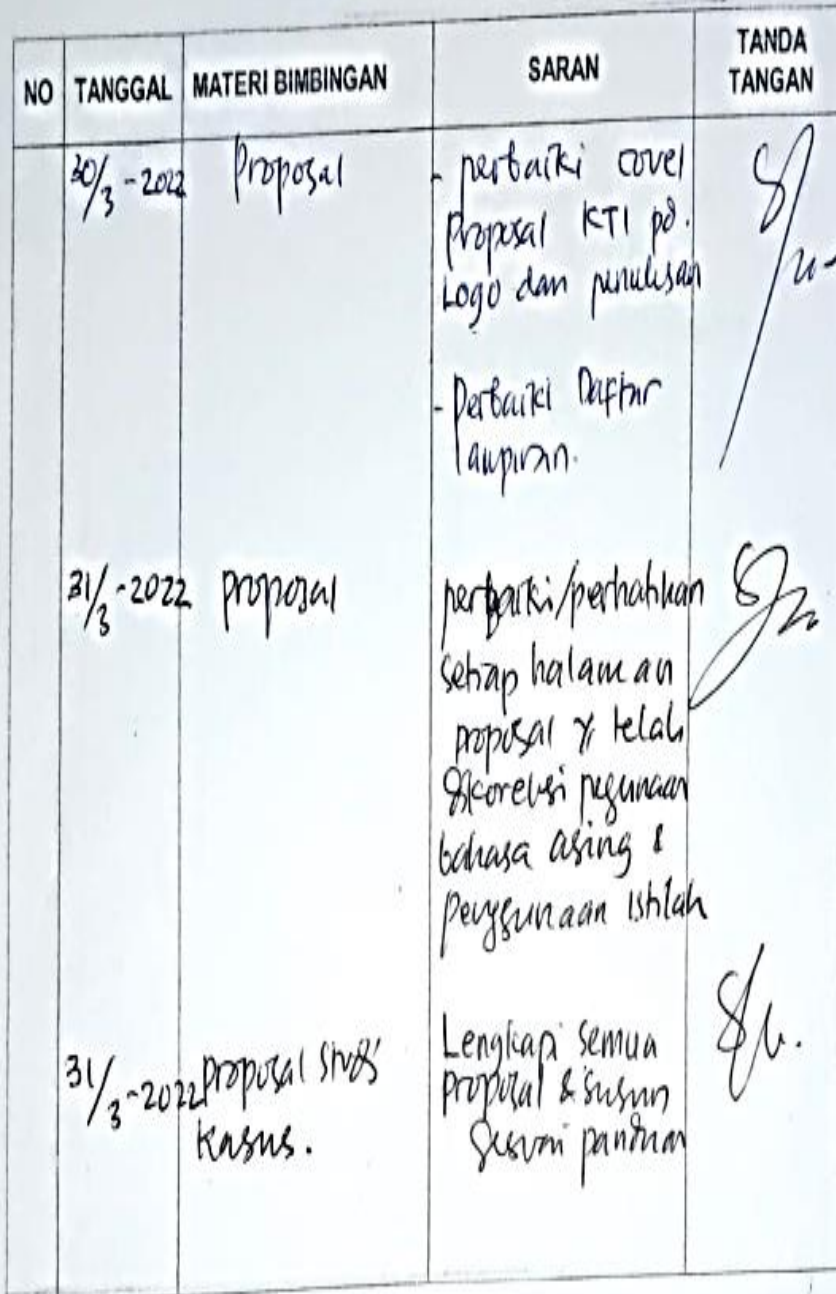 NO TANGGAL MATERI BIMBINGAN SARAN TANDA TANGAN
30/3 - 2022 Proposal - perbaiki cover
Proposal KTI pd.
Logo dan penulisan
- Perbaiki Daftar
lampiran.
31/3 - 2022 proposal perbaiki/perhatikan
setiap halaman
proposal yg telah
dikoreksi pegunaan
bahasa asing &
penggunaan istilah
31/3 - 2022 proposal studi Lengkapi semua
kasus. proposal & susun
sesuai panduan